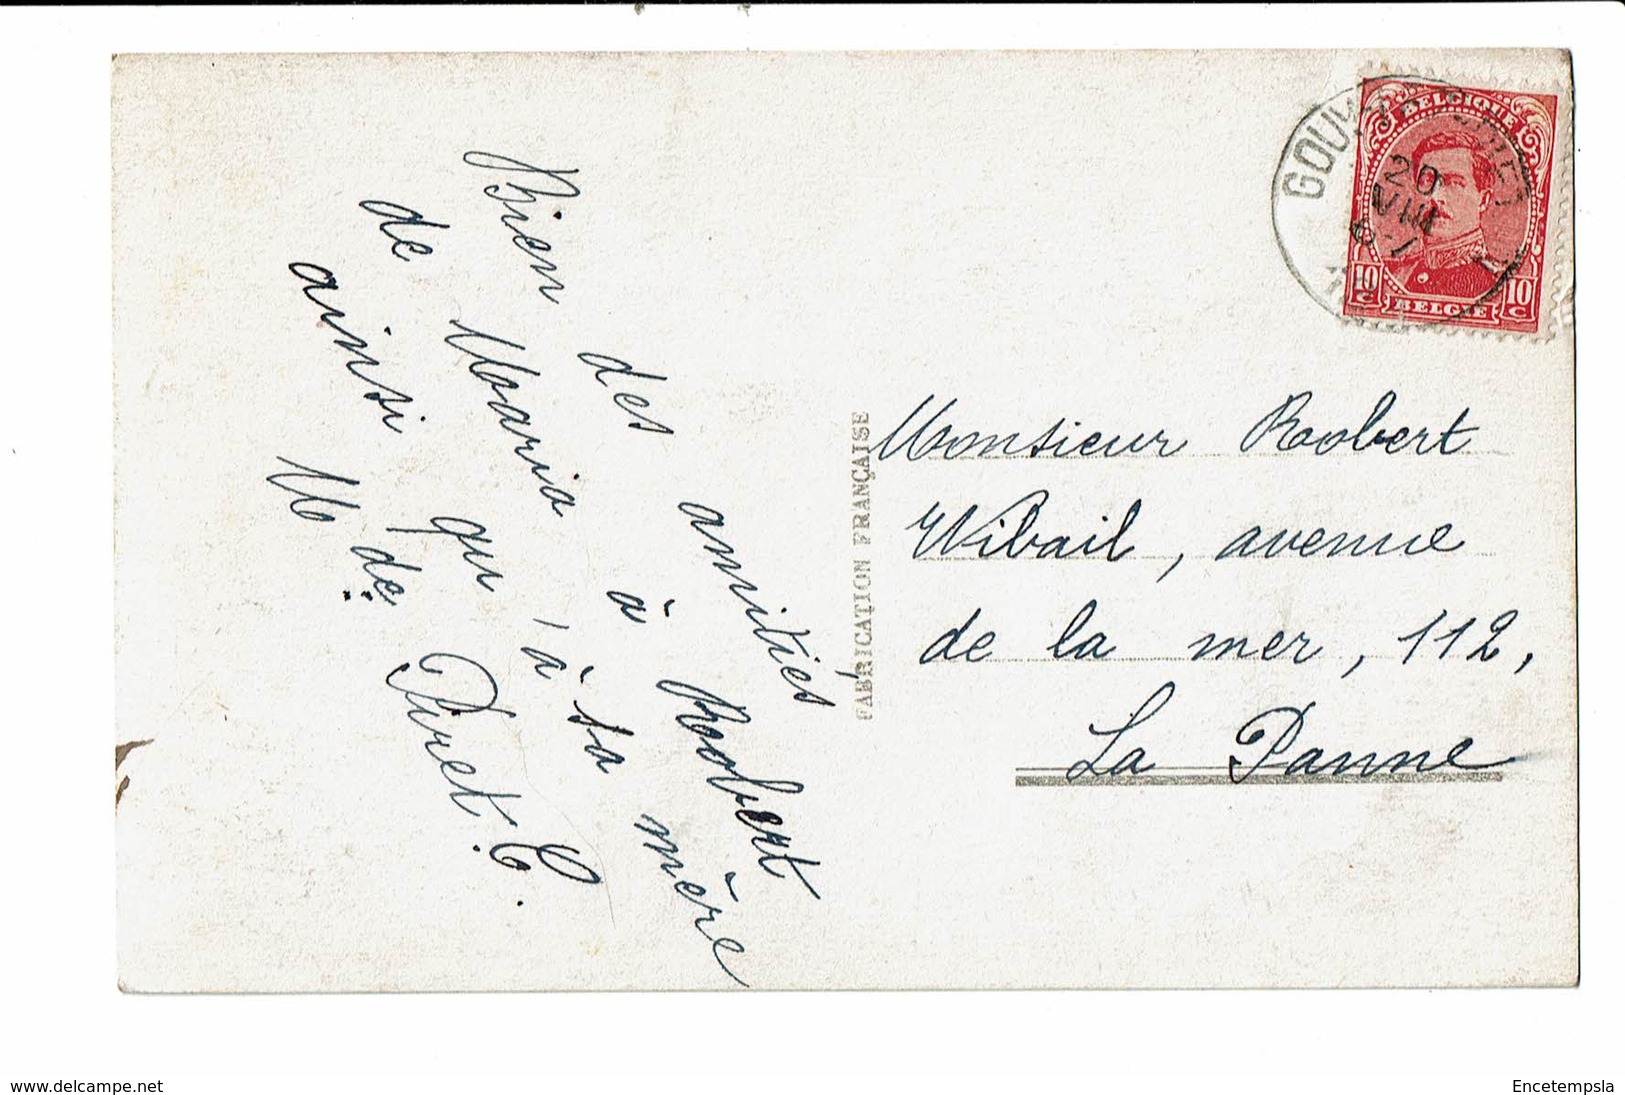 Bien des amitiés
de Maria à Robert
ainsi qu'à sa mère
M de Piret C.
FABRICATION FRANÇAISE
BELGIQUE
10 C
10 C
BELGIE
20
VIII
Monsieur Robert
Wibail, avenue
de la mer, 112,
La Panne
www.delcampe.net
Encetempsla